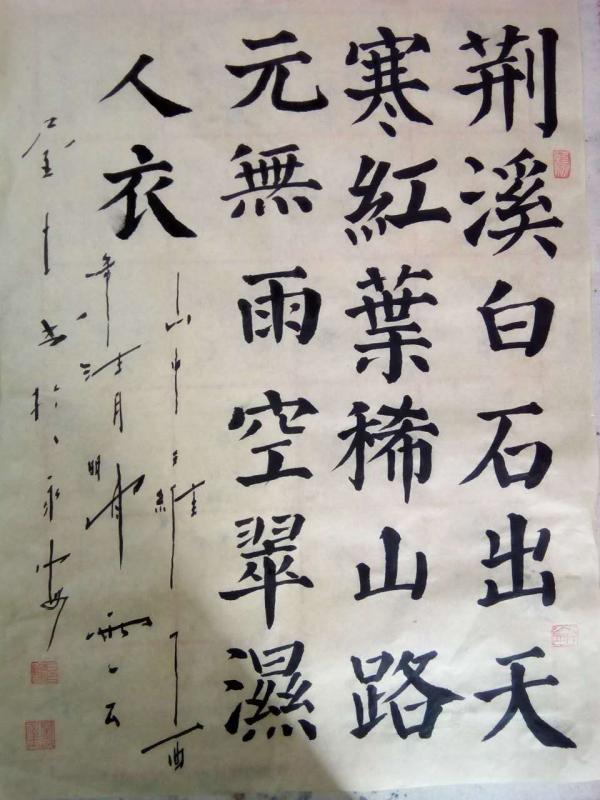 荆溪白石出天
寒紅葉稀山路
元無雨空翠濕
人衣
山中王維丁酉
年
书於永安